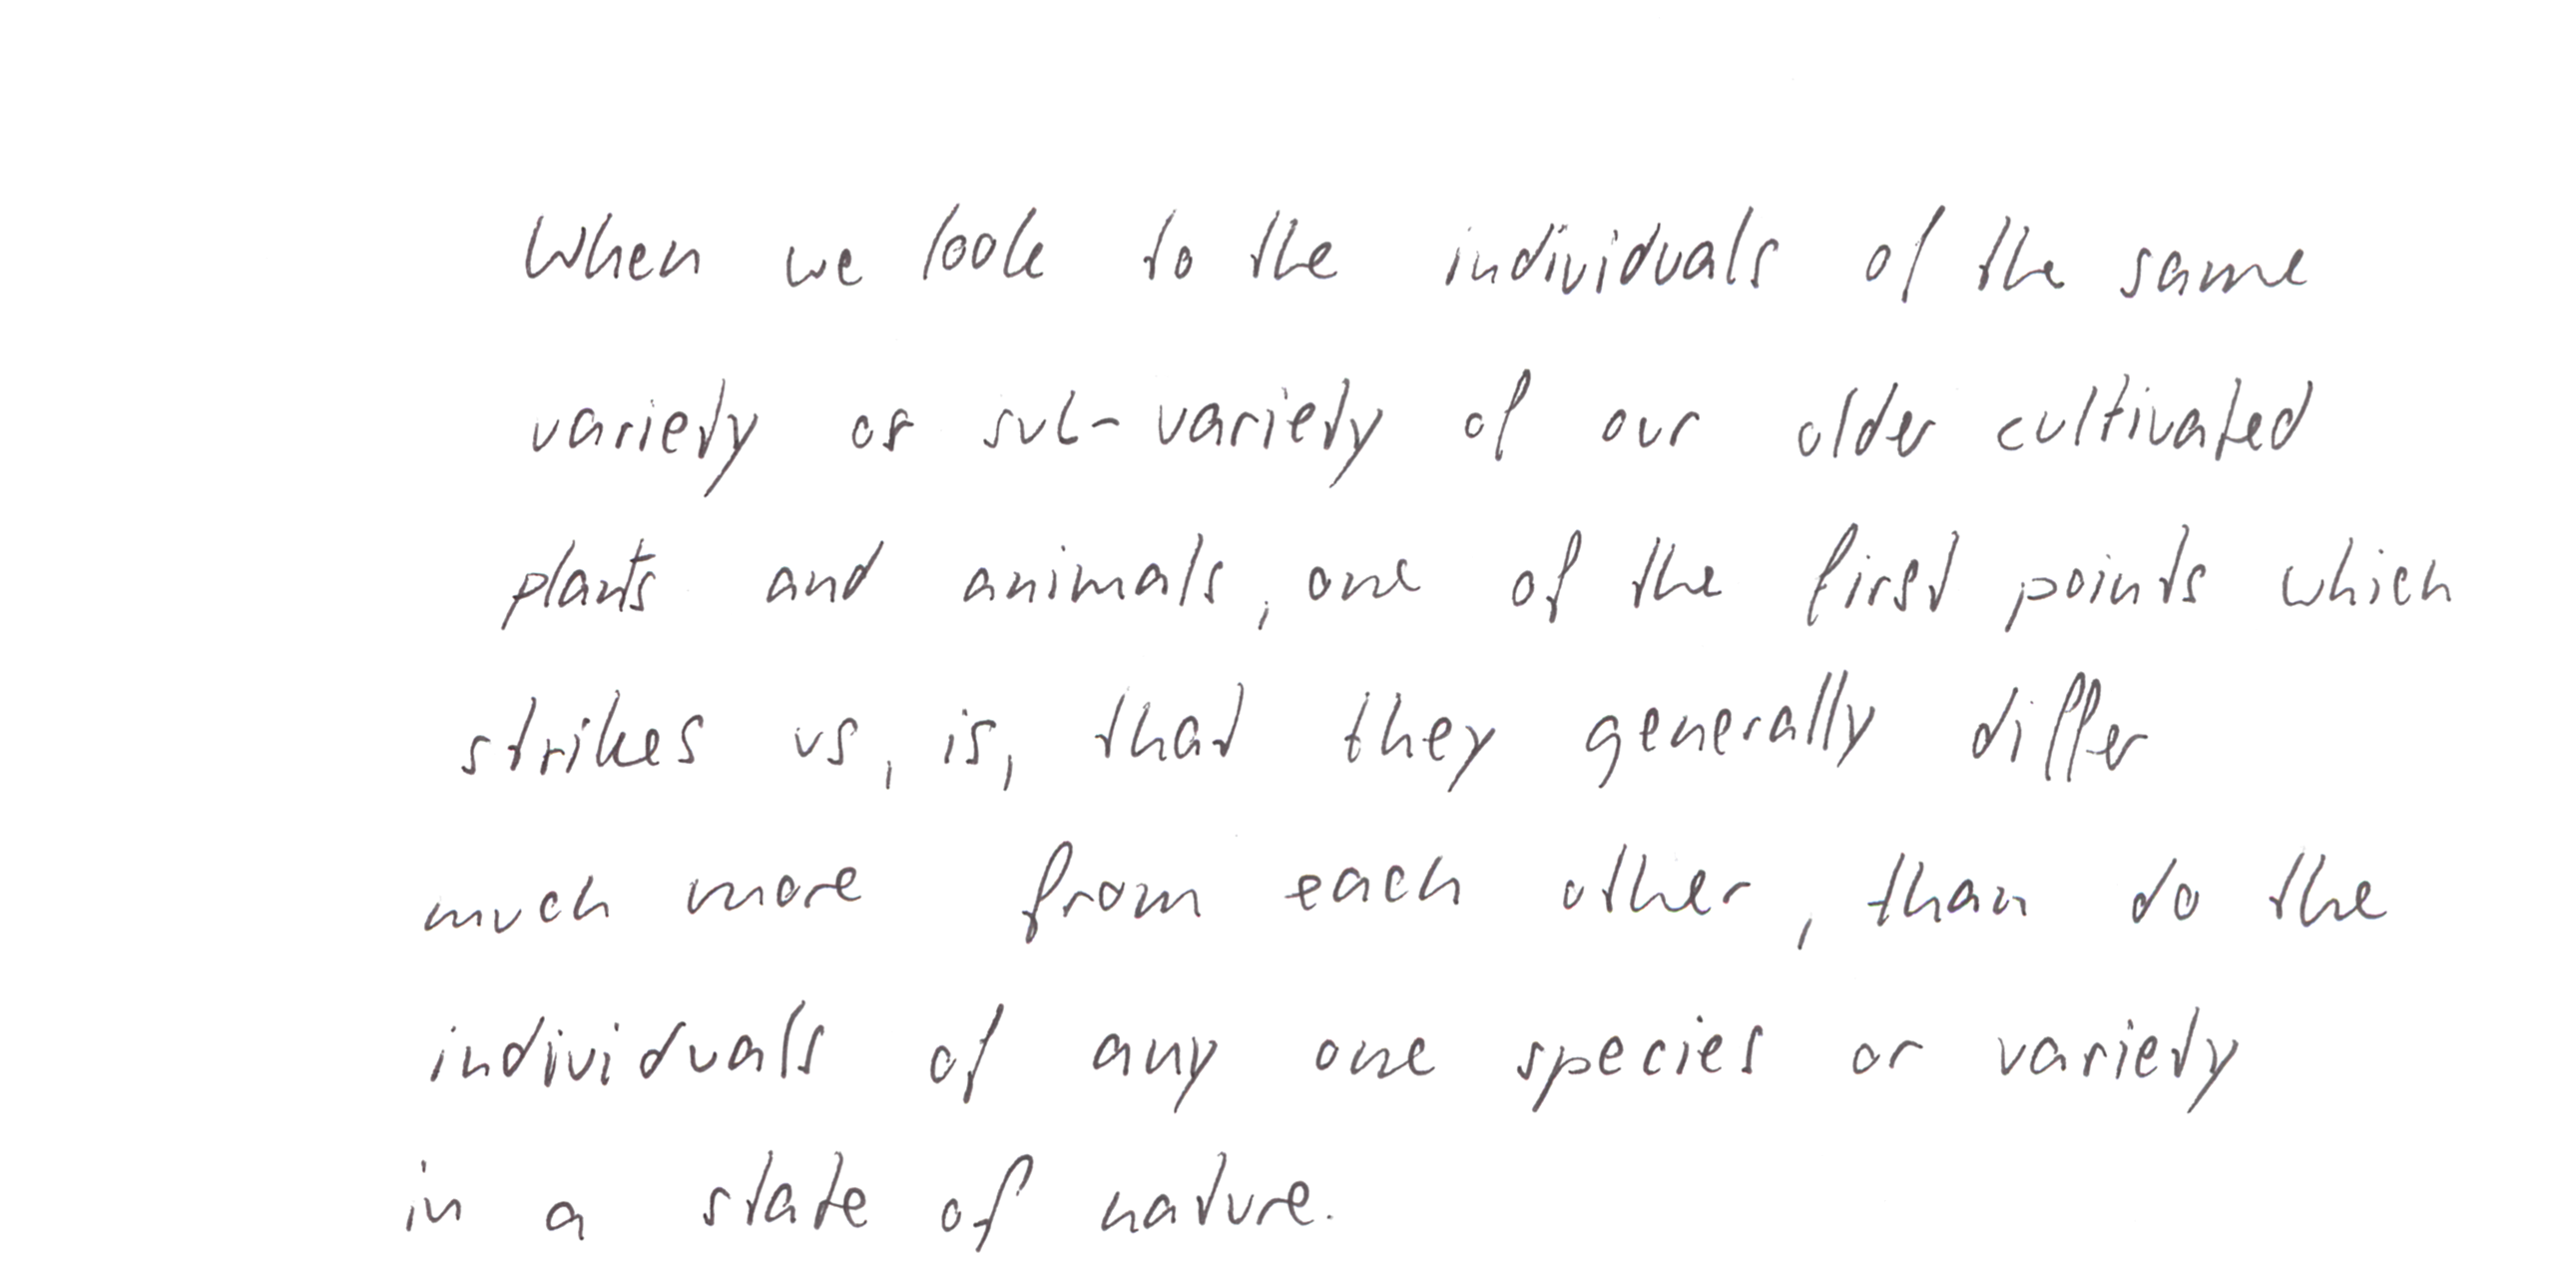 When we look to the individuals of the same
variety or sub-variety of our older cultivated
plants and animals, one of the first points which
strikes us, is, that they generally differ
much more from each other, than do the
individuals of any one species or variety
in a state of nature.